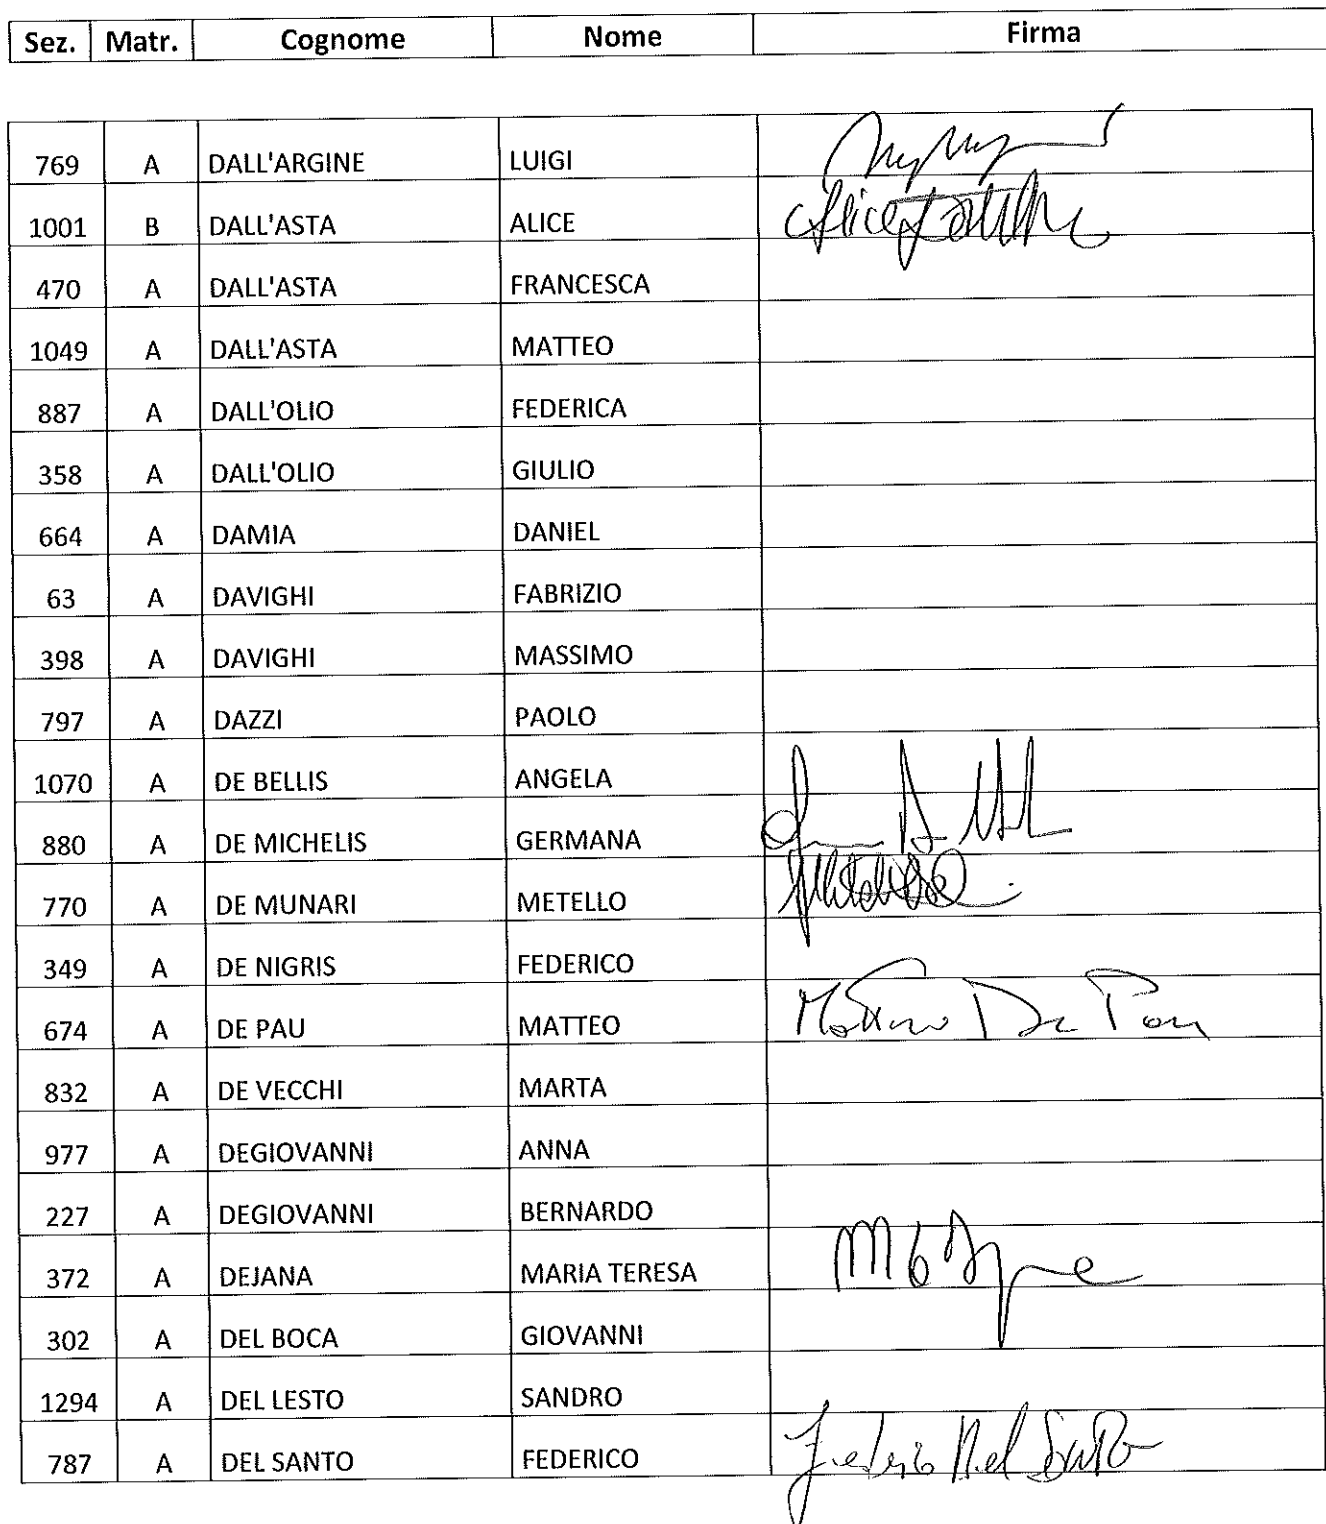 Sez. Matr. Cognome Nome Firma
769 A DALL'ARGINE LUIGI
1001 B DALL'ASTA ALICE Alice
470 A DALL'ASTA FRANCESCA
1049 A DALL'ASTA MATTEO
887 A DALL'OLIO FEDERICA
358 A DALL'OLIO GIULIO
664 A DAMIA DANIEL
63 A DAVIGHI FABRIZIO
398 A DAVIGHI MASSIMO
797 A DAZZI PAOLO
1070 A DE BELLIS ANGELA
880 A DE MICHELIS GERMANA
770 A DE MUNARI METELLO
349 A DE NIGRIS FEDERICO
674 A DE PAU MATTEO Matteo De Pau
832 A DE VECCHI MARTA
977 A DEGIOVANNI ANNA
227 A DEGIOVANNI BERNARDO
372 A DEJANA MARIA TERESA
302 A DEL BOCA GIOVANNI
1294 A DEL LESTO SANDRO
787 A DEL SANTO FEDERICO Federico Del Santo